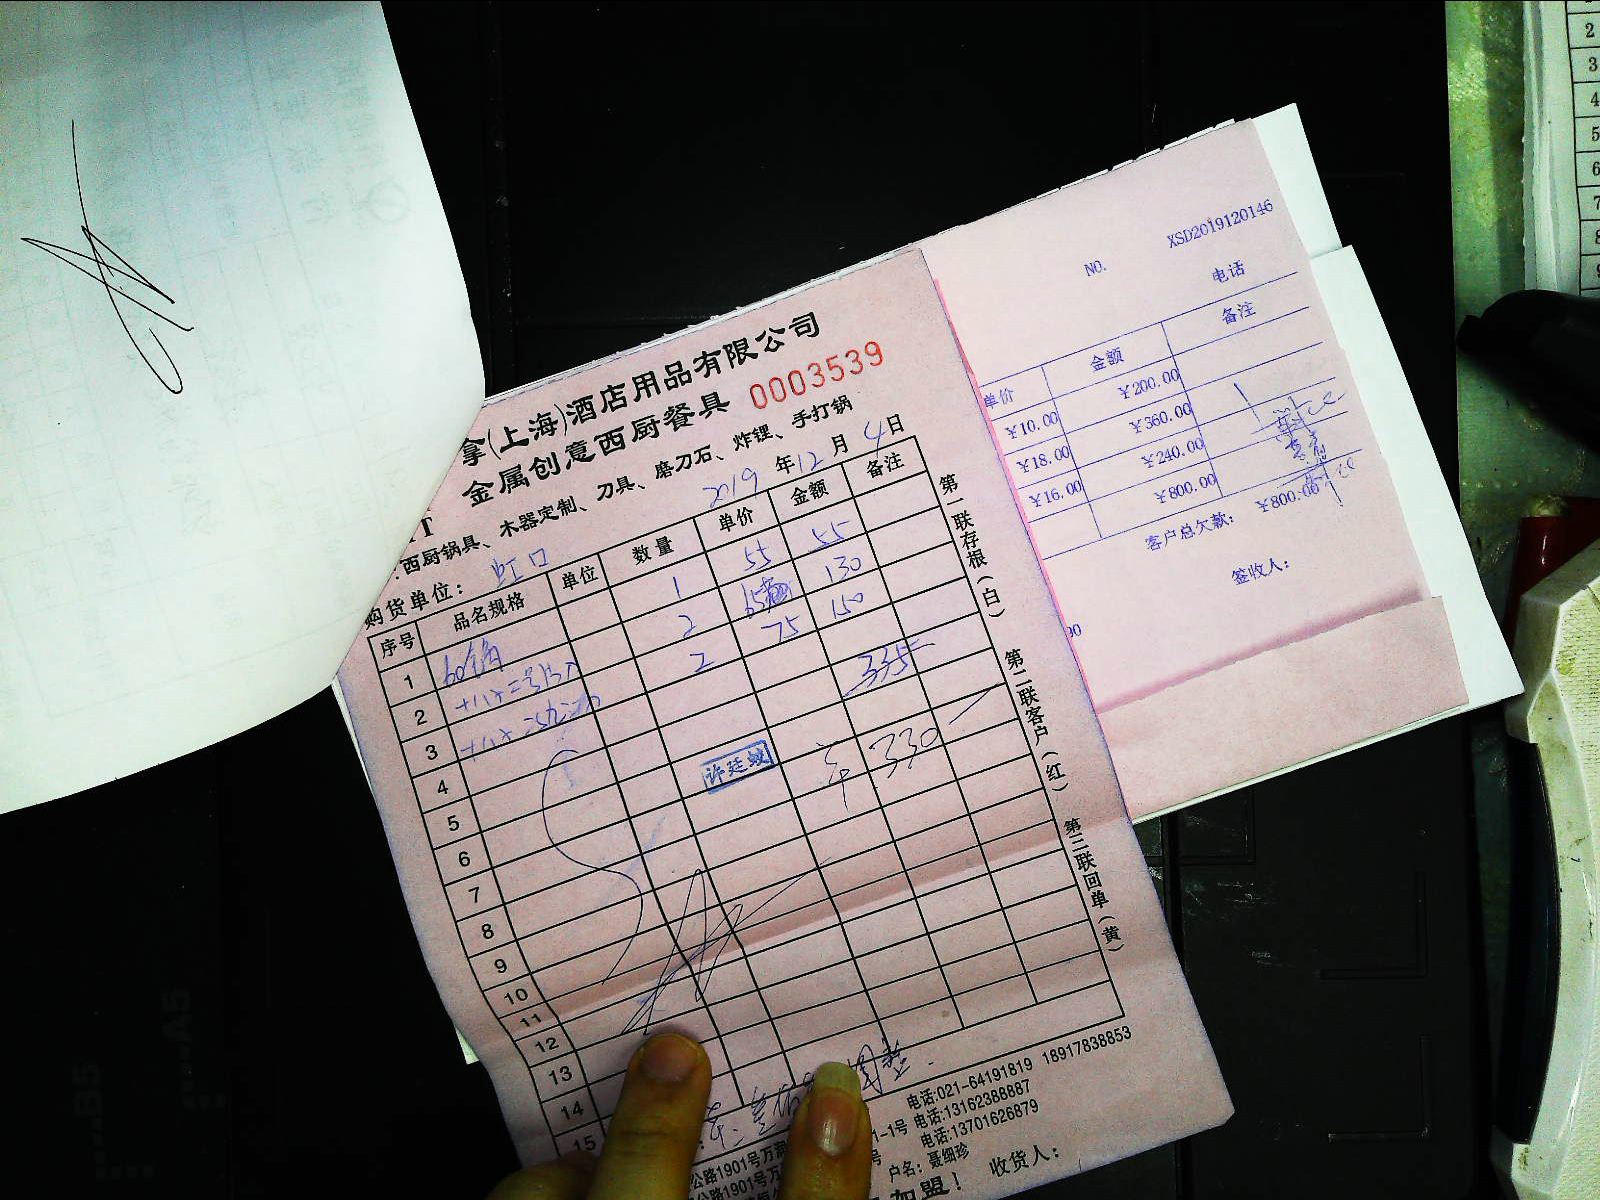 拿(上海)酒店用品有限公司
金属创意西厨餐具 0003539
西厨锅具、木器定制、刀具、磨刀石、炸锂、手打锅
2019年12月4日
购货单位：虹口
序号 品名规格 单位 数量 单价 金额 备注
1 60 1 55 55
2 2 65 130
3 2 75 150
4 335
5
6 330
7
8
9
10
11
12
13
14
15
许廷
第一联存根(白) 第二联客户(红) 第三联回单(黄)
电话:021-64191819 18917838853
1-1号 电话:13162388887
公路1901号万 号 电话:13701626879
公路1901号万 户名：聂细珍
加盟! 收货人：
NO. XSD2019120146
电话
单价 金额 备注
¥10.00 ¥200.00
¥18.00 ¥360.00
¥16.00 ¥240.00
¥800.00
客户总欠款： ¥800.00
签收人：
B5
A5
2
3
4
5
6
7
8